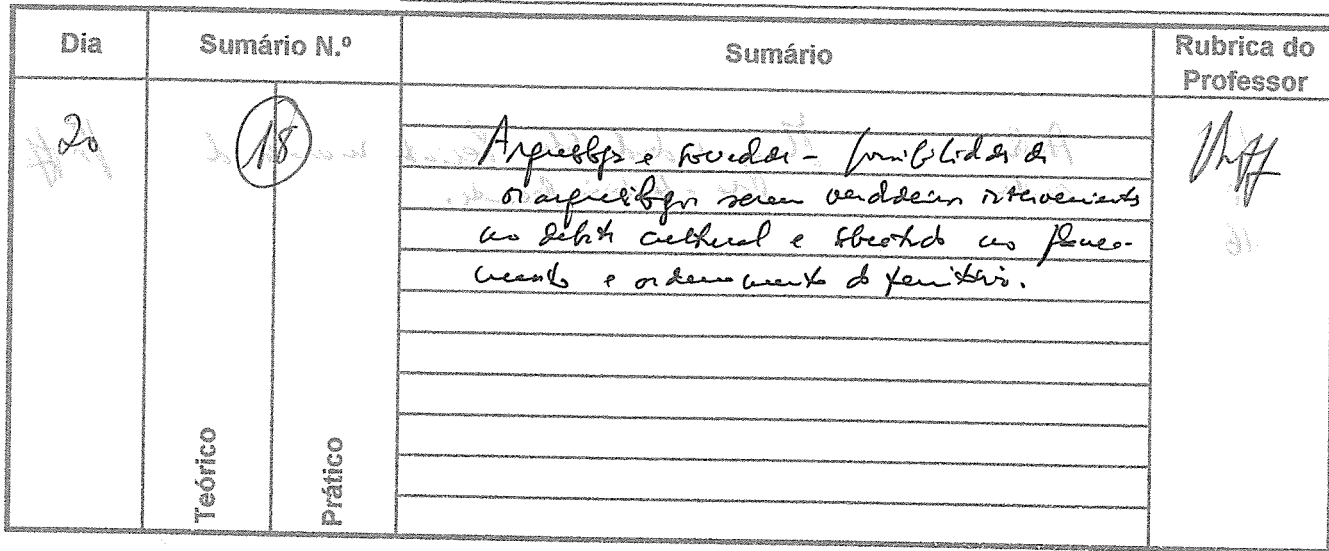 Dia
Sumário N.º
Sumário
Rubrica do
Professor
20
18
Arqueologia e sociedade - possibilidade de
os arqueólogos serem verdadeiros intervenientes
no debate cultural e sobretudo no planea-
mento e ordenamento do território.
Teórico
Prático